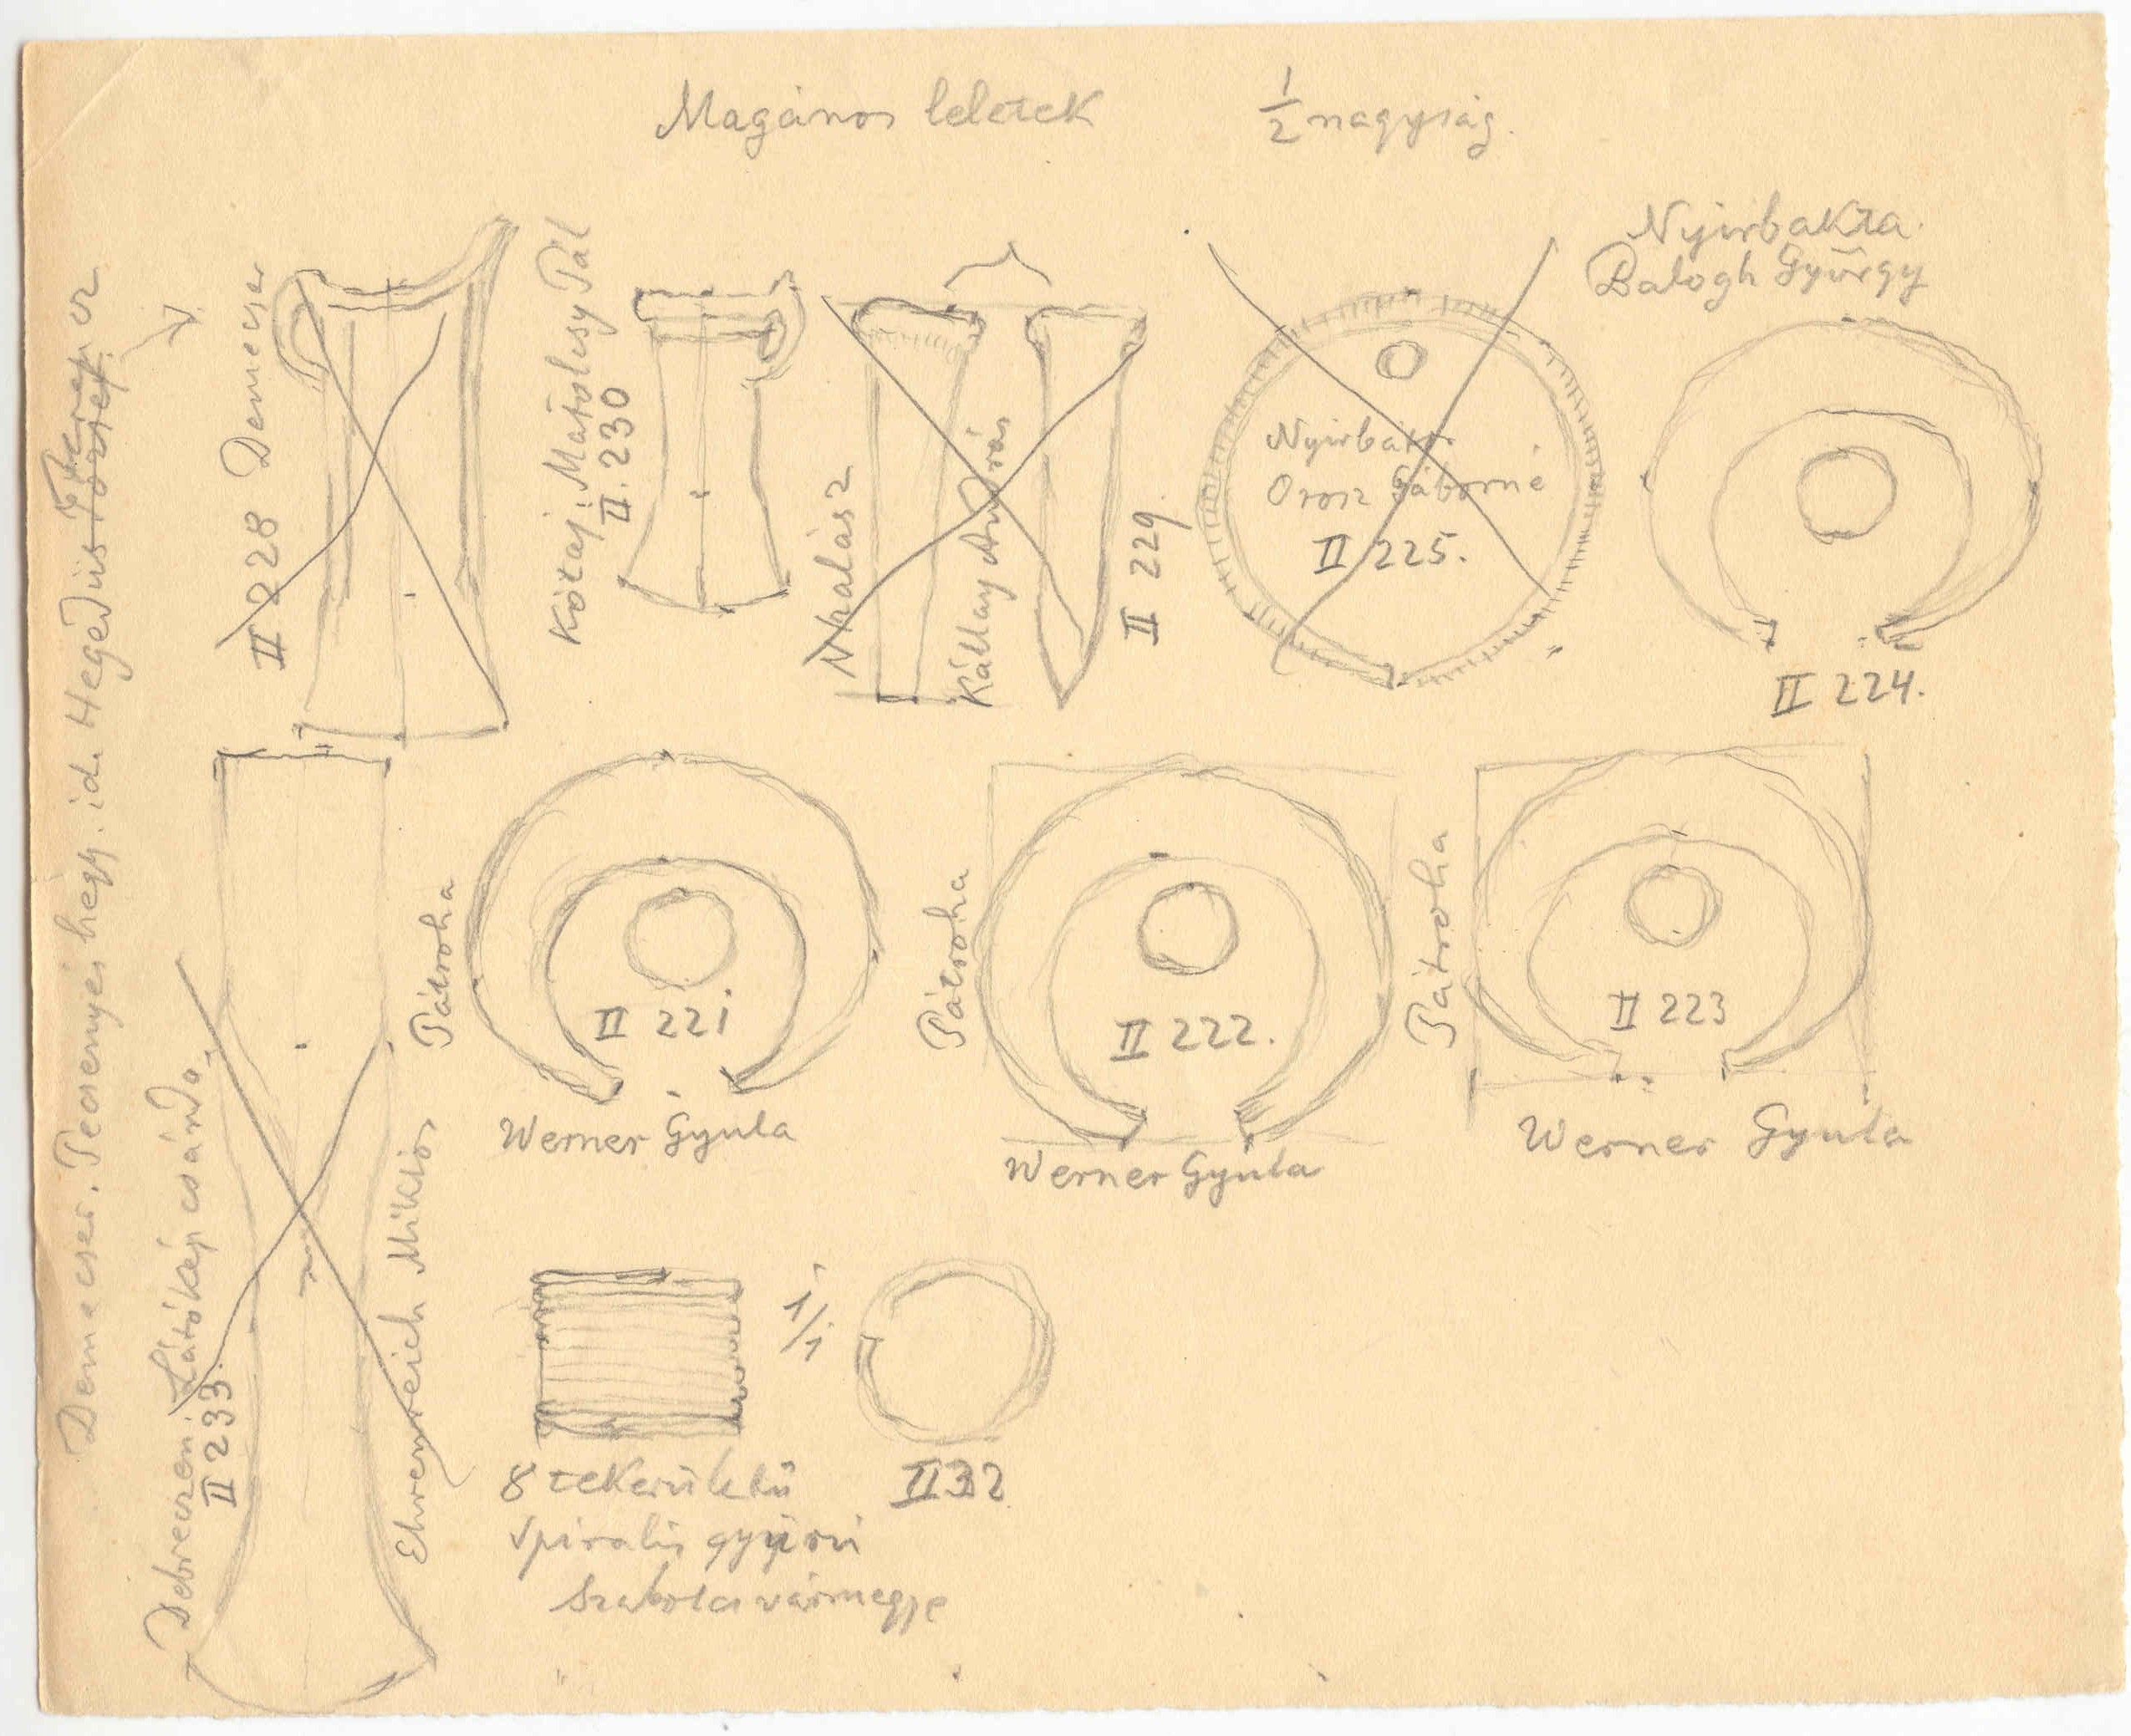 Magános leletek ½ nagyság.
Demecser. Pecsenyés hegy. id. Hegedüs
II 228 Demecser
Kótaj: Matolcsy Pál
II. 230
Nhalász
Kállay András
II 229.
Nyirbátor
Orosz Gáborné
II 225.
Nyirbakta.
Balogh György
II 224.
Debreczen: Látókép csárda.
II 233.
Ehrenreich Miklós
Pátroha
II 221
Werner Gyula
Pátroha
II 222.
Werner Gyula
Pátroha
II 223
Werner Gyula
1/1
8 tekerületü
spiralis gyürü
Szabolcs vármegye
II 32